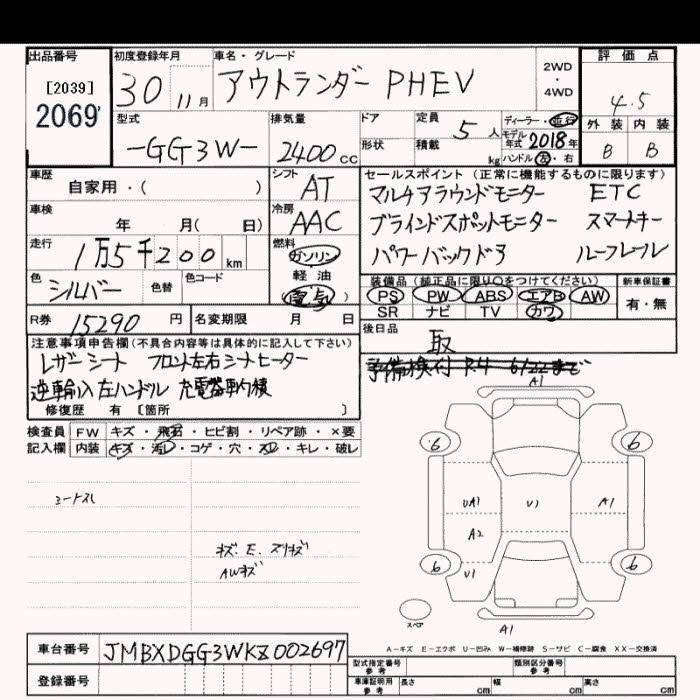 出品番号 初度登録年月 車名・グレード 評価点
[2039] 30 11月 アウトランダー PHEV 2WD・4WD 4.5
2069
型式 排気量 ドア 定員 5人 ディーラー・並行 外装 内装
-GG3W- 2400cc 形状 積載 kg モデル年式 2018年 B B
ハンドル 左・右
車歴 シフト セールスポイント(正常に機能するものに限ります)
自家用・( ) AT マルチアラウンドモニター ETC
車検 冷房 ブラインドスポットモニター スマートキー
年 月( 日) AAC パワーバックドア ルーフレール
走行 1万5千200km 燃料 ガソリン
軽油
電気)
色 シルバー 色替 色コード
装備品(純正品に限り○をつけてください) 新車保証書
PS PW ABS エアB AW 有・無
SR ナビ TV カワ
R券 15290円 名変期限 月 日 後日品
取
注意事項申告欄(不具合内容等は具体的に記入して下さい)
レザーシート フロント左右シートヒーター
逆車輸入 左ハンドル 充電器車内積
予備検付 R.4 6/22まで
修復歴 有 [箇所 ]
検査員 FW キズ・飛石・ヒビ割・リペア跡・×要
記入欄 内装 キズ・汚レ・コゲ・穴・スレ・キレ・破レ
シートスレ
キズ. E. スリキズ
AWキズ
A1
6 6
UA1 U1 A1
A2
6 6
U1
スペア
A1
A-キズ E-エクボ U-凹み W-補修跡 S-サビ C-腐食 XX-交換済
車台番号 JMBXDGG3WKZ002697
登録番号
型式指定番号 参考 類別区分番号 参考
車庫証明用 参考 長さ cm 幅 cm 高さ cm